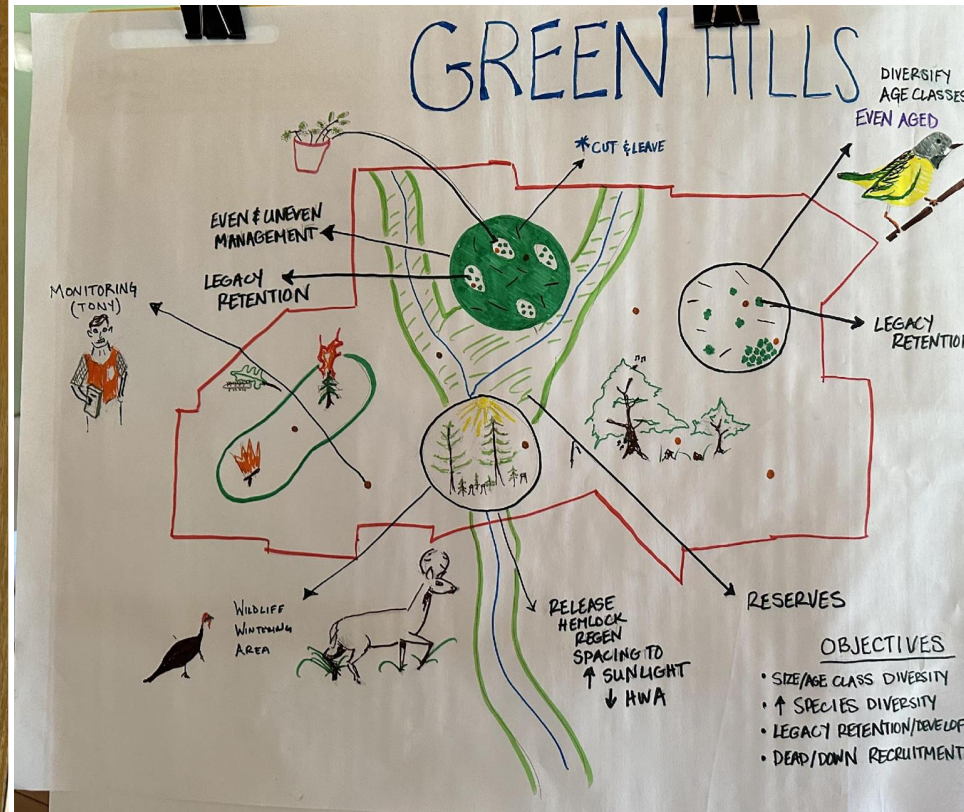 GREEN HILLS
DIVERSIFY
AGE CLASSES
EVEN AGED
*CUT & LEAVE
EVEN & UNEVEN
MANAGEMENT
LEGACY
RETENTION
MONITORING
(TONY)
LEGACY
RETENTION
WILDLIFE
WINTERING
AREA
RELEASE
HEMLOCK
REGEN
SPACING TO
↑ SUNLIGHT
↓ HWA
RESERVES
OBJECTIVES
• SIZE/AGE CLASS DIVERSITY
• ↑ SPECIES DIVERSITY
• LEGACY RETENTION/DEVELOP
• DEAD/DOWN RECRUITMENT